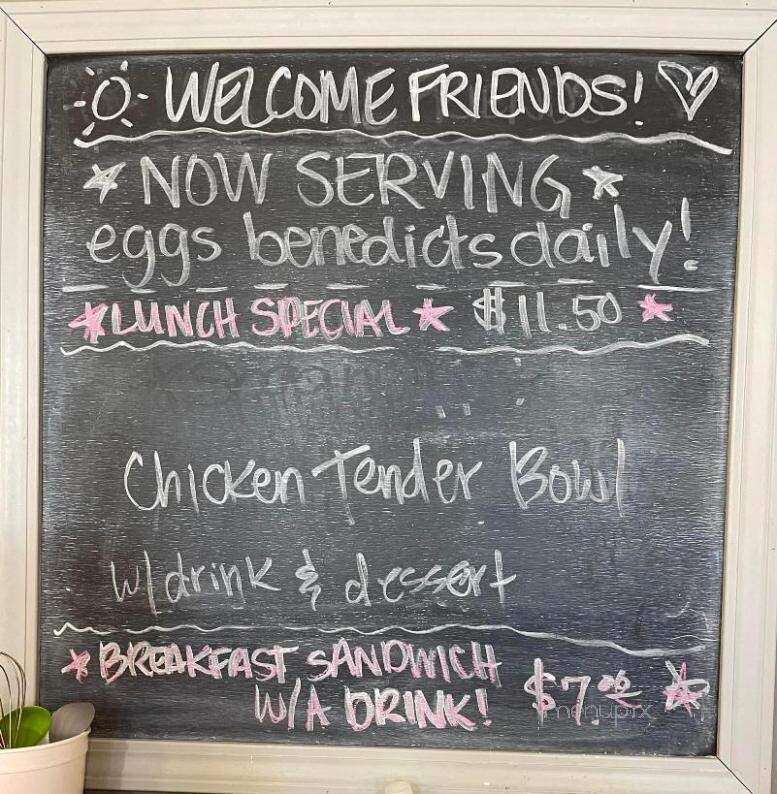 WELCOME FRIENDS!
NOW SERVING
eggs benedicts daily!
LUNCH SPECIAL $11.50
Chicken Tender Bowl
w/drink & dessert
BREAKFAST SANDWICH
W/A DRINK! $7.00
menupix